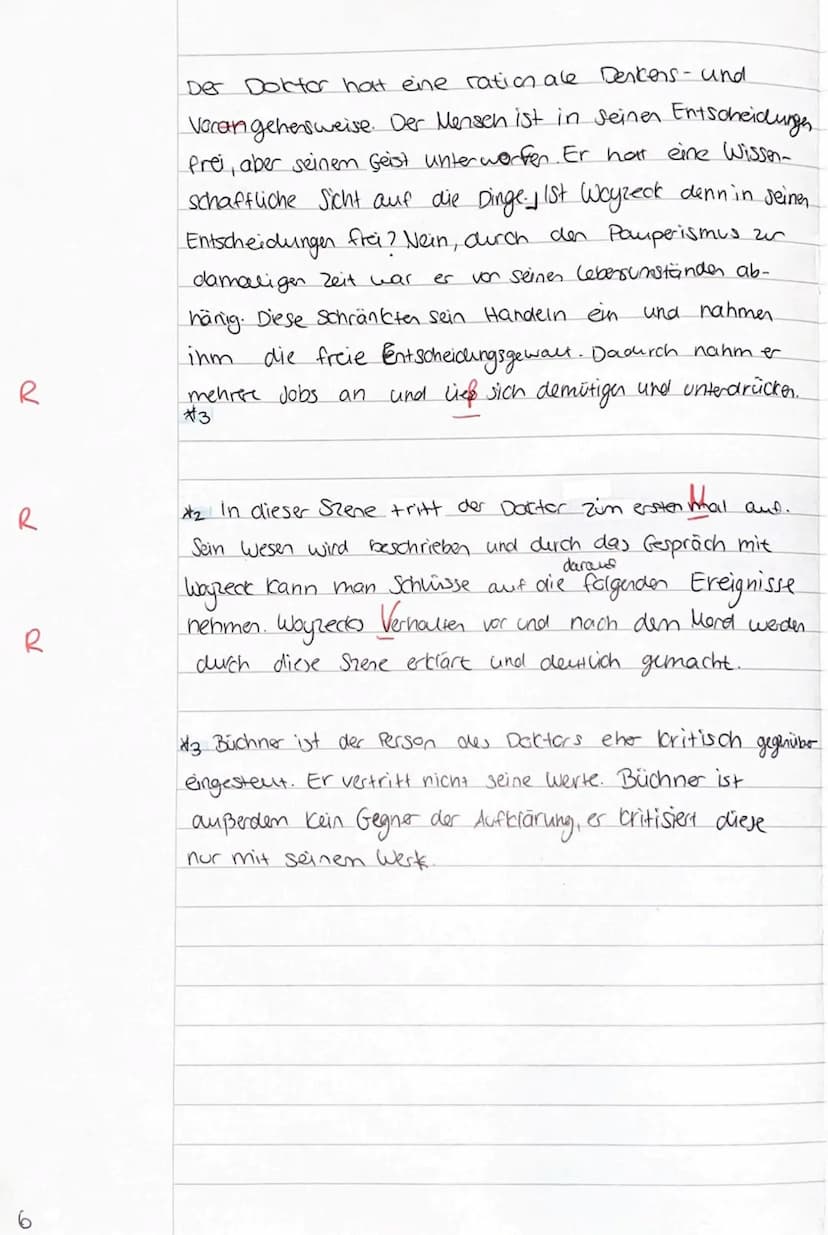 Der Doktor hat eine rationale Denkens- und
Vorangehensweise. Der Mensch ist in seinen Entscheidungen
frei, aber seinem Geist unterworfen. Er hat eine Wissen-
schaftliche Sicht auf die Dinge. Ist Woyzeck denn in seinen
Entscheidungen frei? Nein, durch den Pauperismus zur
damaligen Zeit war er von seinen Lebensumständen ab-
hänig. Diese Schränkten sein Handeln ein und nahmen
ihm die freie Entscheidungsgewalt. Dadurch nahm er
R mehrere Jobs an und ließ sich demütigen und unterdrücken.
*3
R *2 In dieser Szene tritt der Doktor zum ersten Mal auf.
Sein Wesen wird beschrieben und durch das Gespräch mit
Woyzeck kann man Schlüsse auf die darauf folgenden Ereignisse
nehmen. Woyzecks Verhalten vor und nach dem Mord werden
R durch diese Szene erklärt und deutlich gemacht.
*3 Büchner ist der Person des Doktors eher kritisch gegenüber
eingestellt. Er vertritt nicht seine Werte. Büchner ist
außerdem kein Gegner der Aufklärung, er kritisiert diese
nur mit seinem Werk.
6